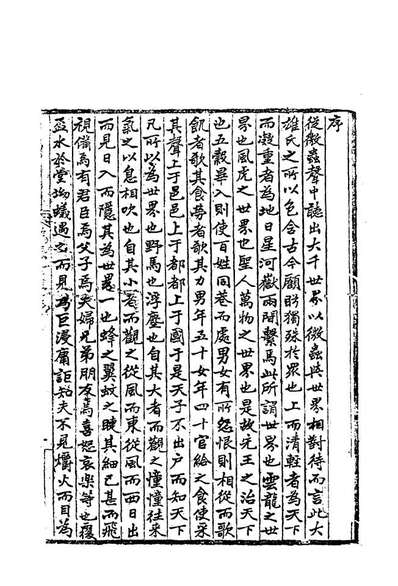 序
從微蟲聲中聽出大千世界以微蟲與世界相對待而言此大
雄氏之所以包含古今顧盼獨殊於眾也上而清輕者為天下
而凝重者為地日星河嶽兩間繫焉此所謂世界也雲龍之世
界也風虎之世界也聖人萬物之世界也是故先王之治天下
也五穀畢入則使百姓同巷而處男女有所怨恨則相從而歌
飢者歌其食勞者歌其力男年五十女年四十官給之食使采
其聲上于邑邑上于都都上于國于是天子不出戶而知天下
凡所以為世界也野馬也浮塵也自其大者而觀之憧憧往來
氣之以息相吹也自其小者而觀之從風而東從風而西日出
而見日入而隱其為世界一也蜂之翼蚊之睫其細已甚而飛
視儼焉有君臣焉父子焉夫婦兄弟朋友焉喜怒哀樂等也覆
盃水於堂坳蟻過之而見為巨浸庸詎知夫不見爝火而目為